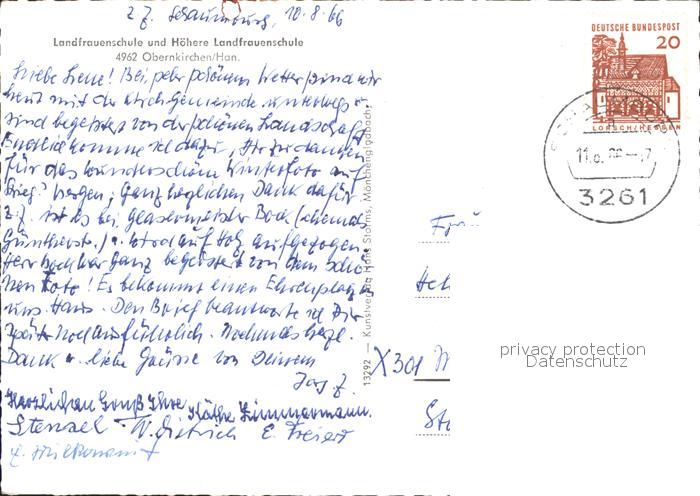 z. Z. Schaumburg, 10.8.66
Landfrauenschule und Höhere Landfrauenschule
4962 Obernkirchen/Han.
Liebe Lene! Bei sehr schönem Wetter sind wir
heut mit der Kirchgemeinde unterwegs u.
sind begeistert von der schönen Landschaft.
Endlich komme ich dazu, zu danken
für das wunderschöne Winterfoto auf
Bergen; Ganz herzlichen Dank dafür
z. Z. ist es bei Glasermeister Bock (ehemals
u. wird auf Holz aufgezogen.
Herr Bock war ganz begeistert von dem schö-
nen Foto! Es bekommt einen Ehrenplatz in
uns. Haus. Den Brief beantworte ich Dir
später noch ausführlich. Nochmals herzl.
Dank u. liebe Grüsse von Deinem
Herzlichen Gruß Ihre Käthe Zimmermann.
Stenzel W. Dietrich E. Freiert
13292 — Kunstverlag Hans Storms, Mönchengladbach
DEUTSCHE BUNDESPOST
20
LORSCH/HESSEN
11.8.66—17
3261
X301
privacy protection
Datenschutz